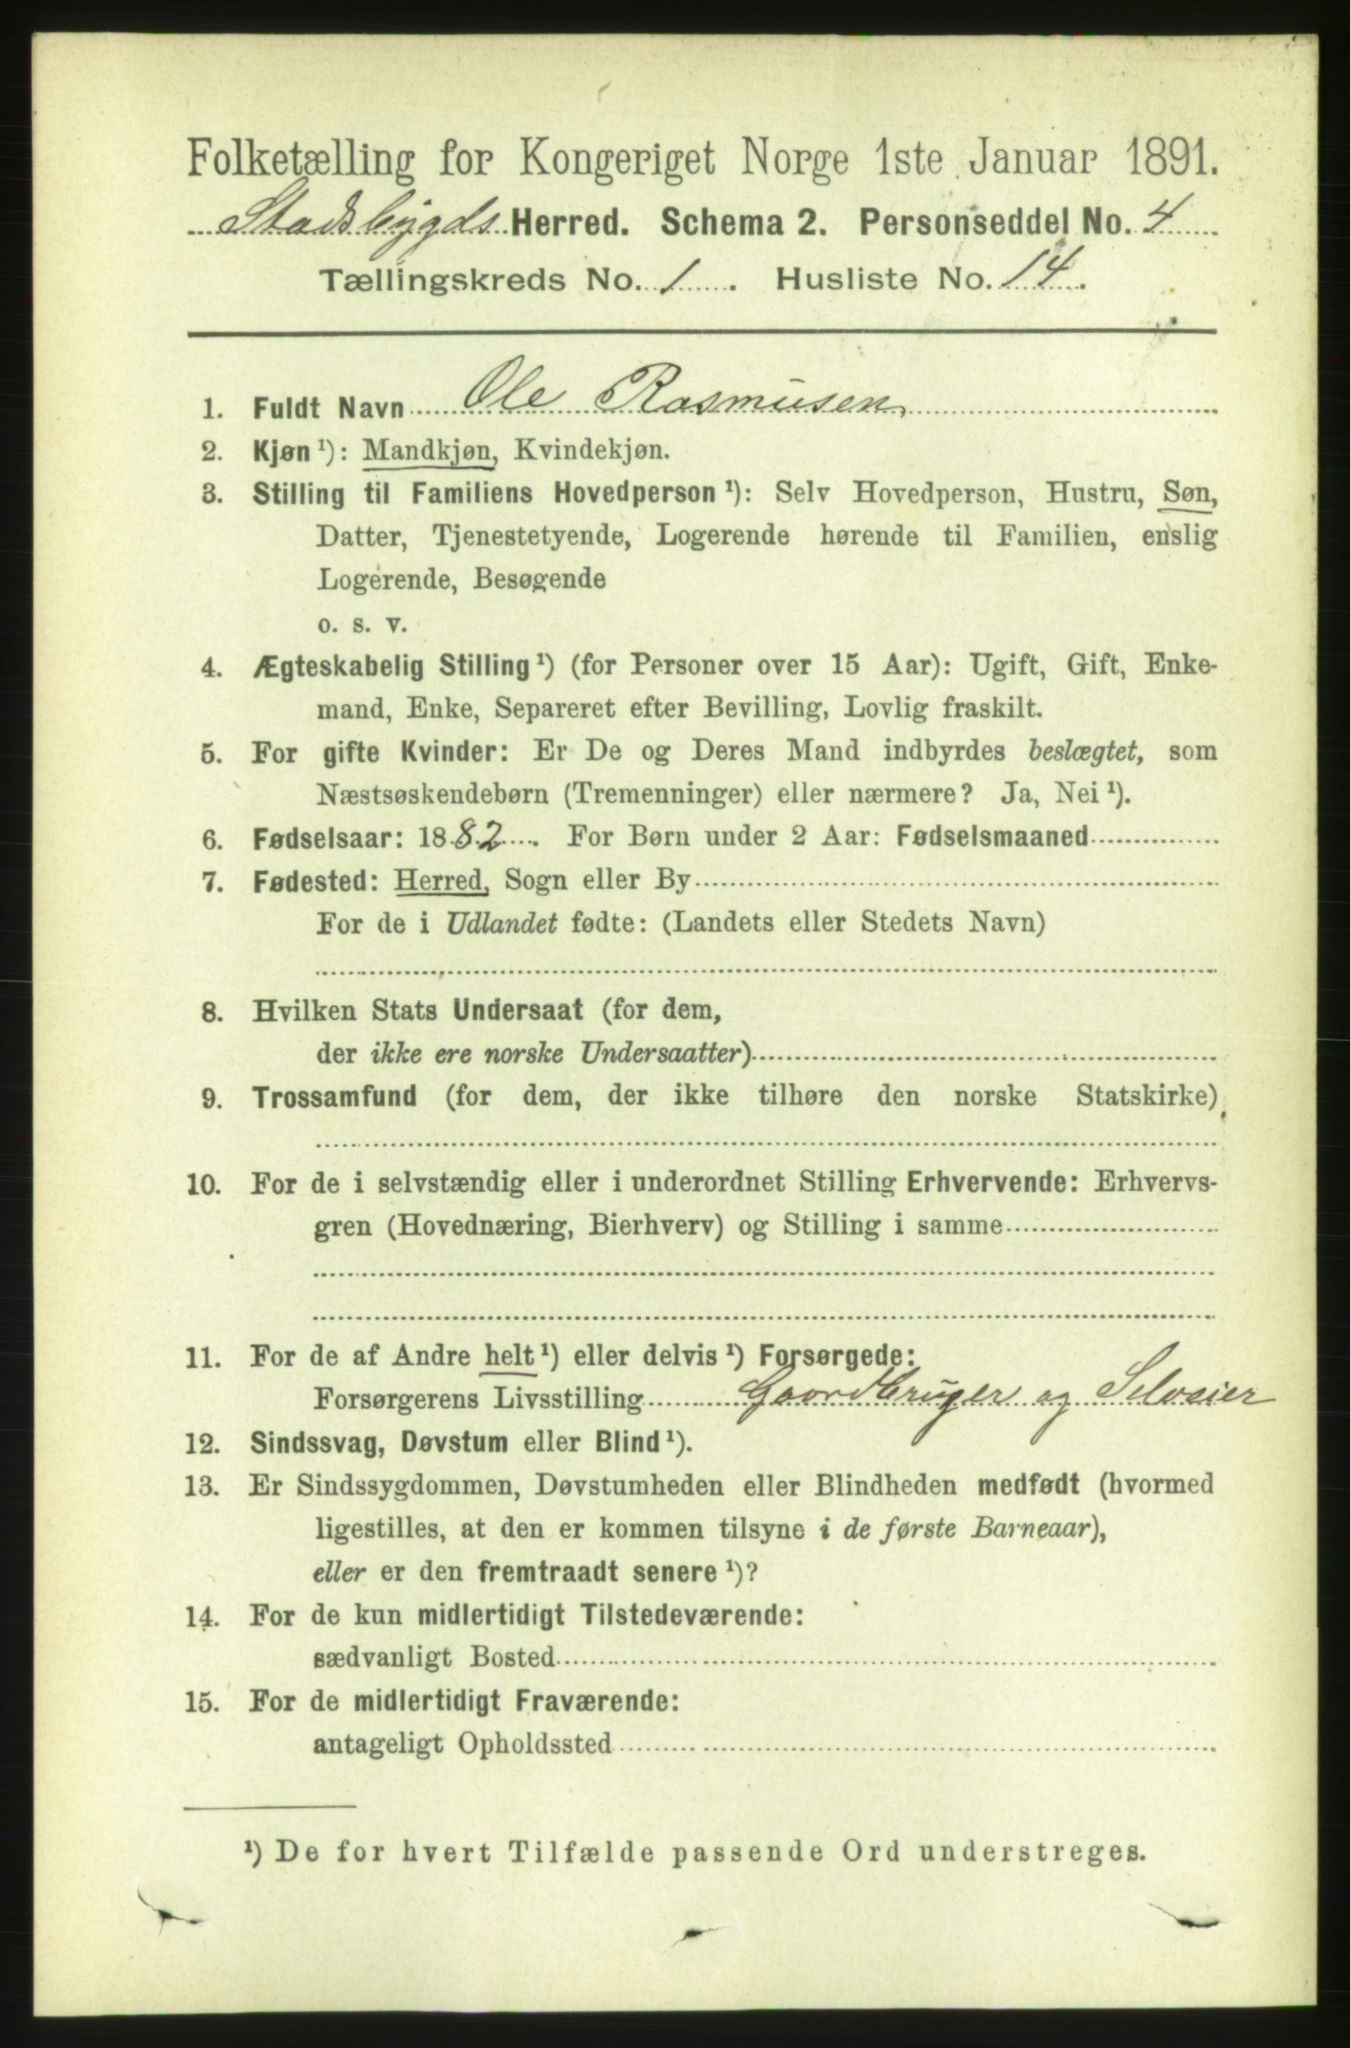 Folketælling for Kongeriget Norge 1ste Januar 1891.
Stadsbygds Herred. Schema 2. Personseddel No. 4
Tællingskreds No. 1. Husliste No. 14.
1. Fuldt Navn Ole Rasmusen
2. Kjøn ¹): Mandkjøn, Kvindekjøn.
3. Stilling til Familiens Hovedperson ¹): Selv Hovedperson, Hustru, Søn,
Datter, Tjenestetyende, Logerende hørende til Familien, enslig
Logerende, Besøgende
o. s. v.
4. Ægteskabelig Stilling ¹) (for Personer over 15 Aar): Ugift, Gift, Enke-
mand, Enke, Separeret efter Bevilling, Lovlig fraskilt.
5. For gifte Kvinder: Er De og Deres Mand indbyrdes beslægtet, som
Næstsøskendebørn (Tremenninger) eller nærmere? Ja, Nei ¹).
6. Fødselsaar: 1882. For Børn under 2 Aar: Fødselsmaaned
7. Fødested: Herred, Sogn eller By
For de i Udlandet fødte: (Landets eller Stedets Navn)
8. Hvilken Stats Undersaat (for dem,
der ikke ere norske Undersaatter)
9. Trossamfund (for dem, der ikke tilhøre den norske Statskirke)
10. For de i selvstændig eller i underordnet Stilling Erhvervende: Erhvervs-
gren (Hovednæring, Bierhverv) og Stilling i samme
11. For de af Andre helt ¹) eller delvis ¹) Forsørgede:
Forsørgerens Livsstilling Gaardbruger og Selveier
12. Sindssvag, Døvstum eller Blind ¹).
13. Er Sindssygdommen, Døvstumheden eller Blindheden medfødt (hvormed
ligestilles, at den er kommen tilsyne i de første Barneaar),
eller er den fremtraadt senere ¹)?
14. For de kun midlertidigt Tilstedeværende:
sædvanligt Bosted
15. For de midlertidigt Fraværende:
antageligt Opholdssted
¹) De for hvert Tilfælde passende Ord understreges.